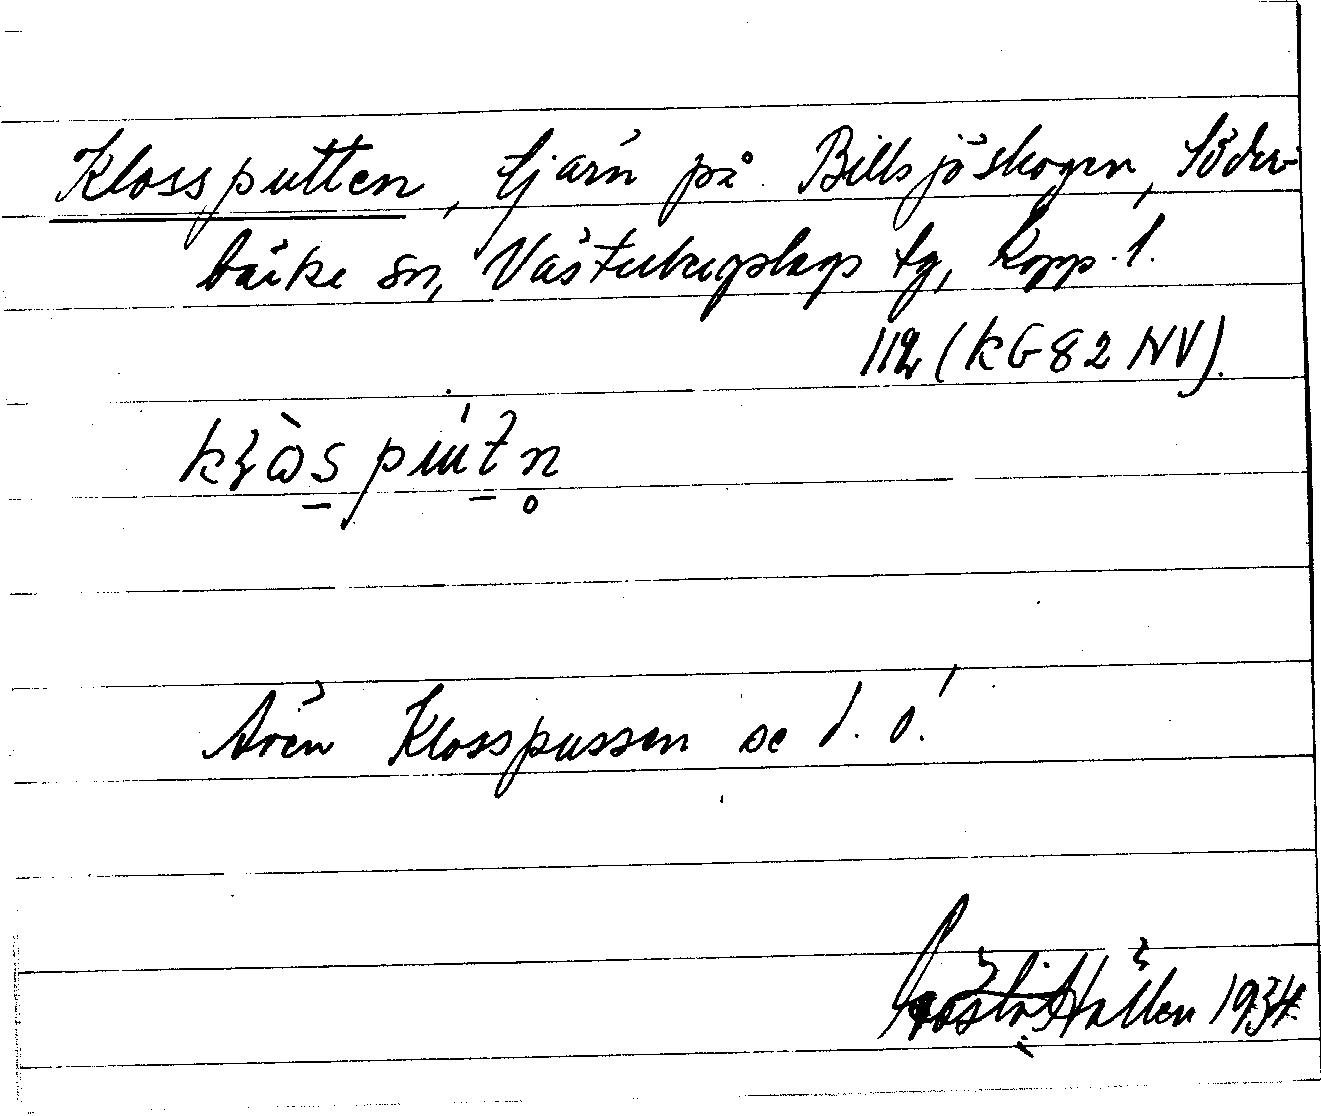 Klossputten, tjärn på Billsjöskogen, Söder-
bärke sn, Västerbergslags tg, Kopp. l.
112 (KG 82 NV).
Även Klosspussen se d. o!
Gösta Hallén 1934